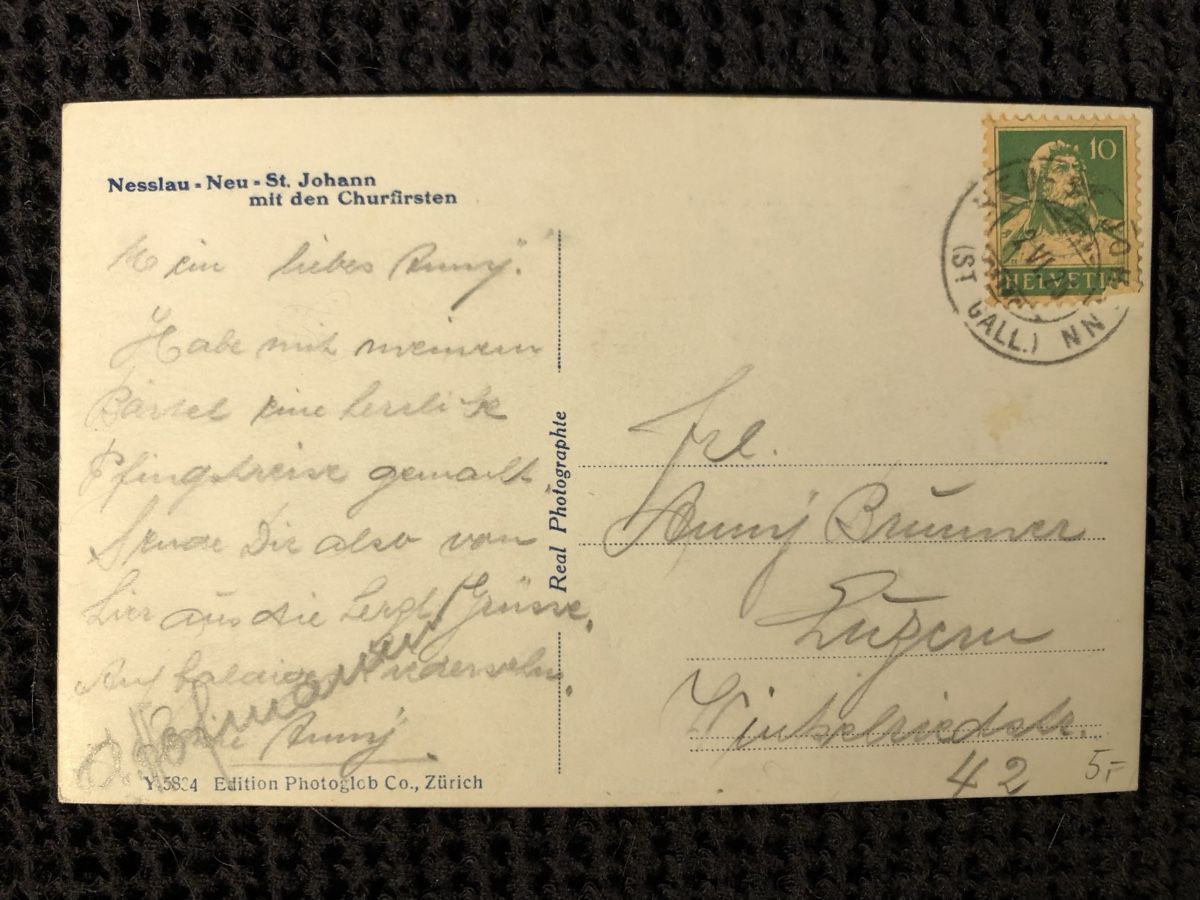 Nesslau - Neu - St. Johann
mit den Churfirsten
Mein liebes Anny!
Habe mit meinem
eine herrliche
Pfingstreise gemacht.
Sende Dir also von
hier aus die herzl. Grüsse.
Auf baldiges Wiedersehn.
Anny
Hofmann
Y.5834 Edition Photoglob Co., Zürich
Real Photographie
10
HELVETIA
(ST. GALL.)
Frl.
Anny Brunner
Luzern
Winkelriedstr.
42
5.-